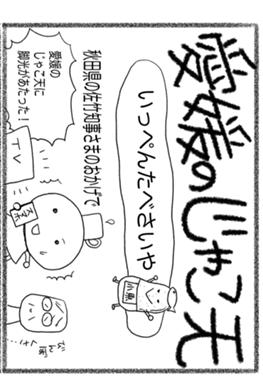 愛媛のじゃこ天
いっぺんたべさいや
秋田県の佐竹知事さまのおかげで
愛媛の
じゃこ天に
脚光があたった！
TV
小魚